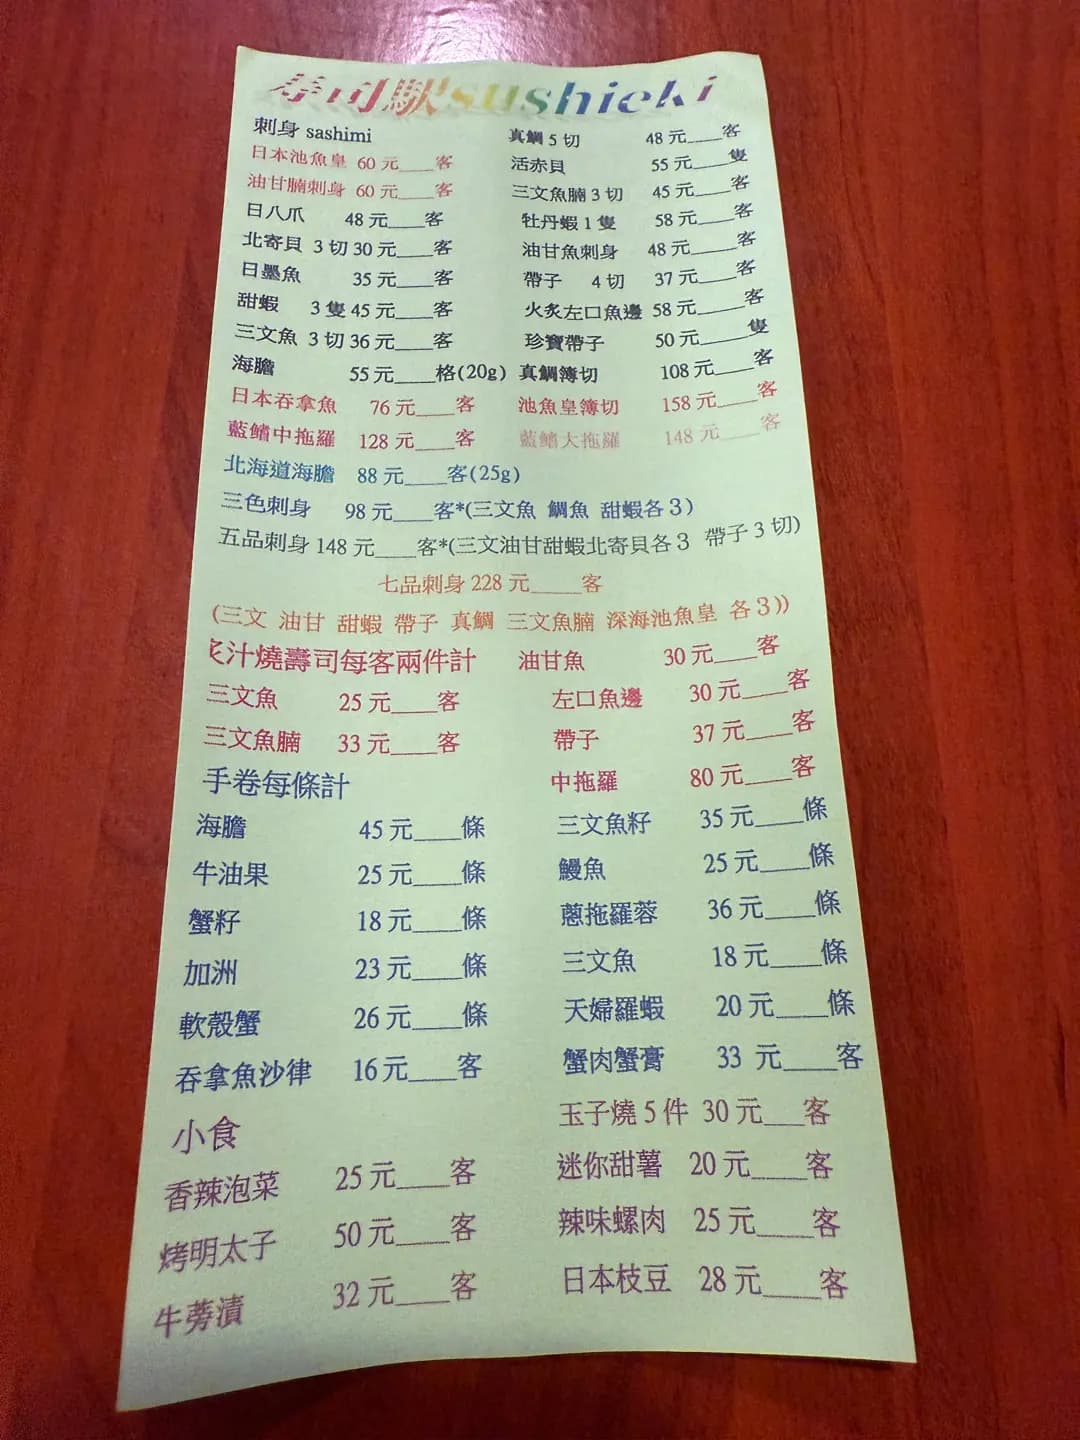 寿司駅sushieki
刺身 sashimi
日本池魚皇 60 元____客
油甘腩刺身 60 元____客
日八爪 48 元____客
北寄貝 3 切 30 元____客
日墨魚 35 元____客
甜蝦 3 隻 45 元____客
三文魚 3 切 36 元____客
海膽 55 元____格(20g)
日本吞拿魚 76 元____客
藍鰭中拖羅 128 元____客
真鯛 5 切 48 元____客
活赤貝 55 元____隻
三文魚腩 3 切 45 元____客
牡丹蝦 1 隻 58 元____客
油甘魚刺身 48 元____客
帶子 4 切 37 元____客
火炙左口魚邊 58 元____客
珍寶帶子 50 元____隻
真鯛簿切 108 元____客
池魚皇簿切 158 元____客
藍鰭大拖羅 148 元____客
北海道海膽 88 元____客(25g)
三色刺身 98 元____客*(三文魚 鯛魚 甜蝦各 3 )
五品刺身 148 元____客*(三文油甘甜蝦北寄貝各 3 帶子 3 切)
七品刺身 228 元____客
(三文 油甘 甜蝦 帶子 真鯛 三文魚腩 深海池魚皇 各 3 ))
汁燒壽司每客兩件計
三文魚 25 元____客
三文魚腩 33 元____客
油甘魚 30 元____客
左口魚邊 30 元____客
帶子 37 元____客
中拖羅 80 元____客
手卷每條計
海膽 45 元____條
牛油果 25 元____條
蟹籽 18 元____條
加洲 23 元____條
軟殼蟹 26 元____條
吞拿魚沙律 16 元____客
三文魚籽 35 元____條
鰻魚 25 元____條
蔥拖羅蓉 36 元____條
三文魚 18 元____條
天婦羅蝦 20 元____條
蟹肉蟹膏 33 元____客
小食
香辣泡菜 25 元____客
烤明太子 50 元____客
牛蒡漬 32 元____客
玉子燒 5 件 30 元____客
迷你甜薯 20 元____客
辣味螺肉 25 元____客
日本枝豆 28 元____客